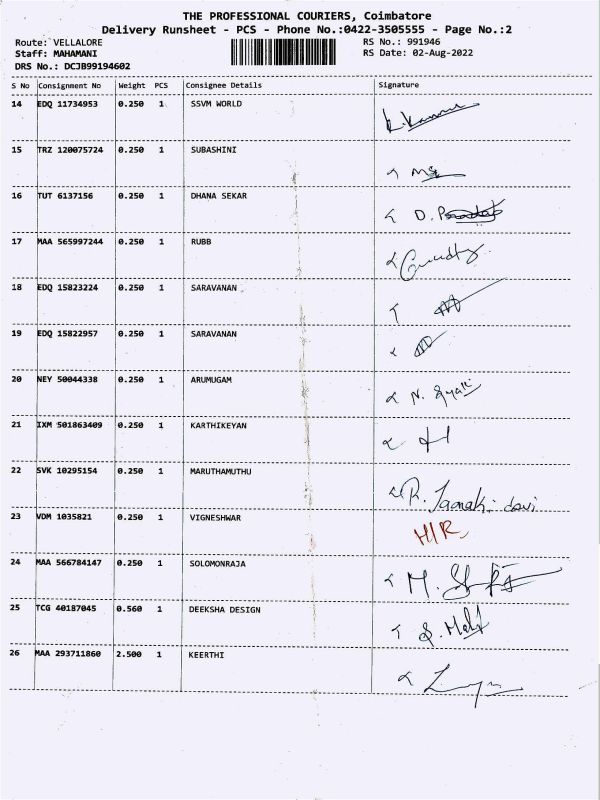 THE PROFESSIONAL COURIERS, Coimbatore
Delivery Runsheet - PCS - Phone No.:0422-3505555 - Page No.:2
Route: VELLALORE RS No.: 991946
Staff: MAHAMANI RS Date: 02-Aug-2022
DRS No.: DCJB99194602
S No Consignment No Weight PCS Consignee Details Signature
14 EDQ 11734953 0.250 1 SSVM WORLD
15 TRZ 120075724 0.250 1 SUBASHINI
16 TUT 6137156 0.250 1 DHANA SEKAR D.
17 MAA 565997244 0.250 1 RUBB
18 EDQ 15823224 0.250 1 SARAVANAN
19 EDQ 15822957 0.250 1 SARAVANAN
20 NEY 50044338 0.250 1 ARUMUGAM N.
21 IXM 501863409 0.250 1 KARTHIKEYAN
22 SVK 10295154 0.250 1 MARUTHAMUTHU R. Janaki devi
23 VDM 1035821 0.250 1 VIGNESHWAR H/R
24 MAA 566784147 0.250 1 SOLOMONRAJA M.
25 TCG 40187045 0.560 1 DEEKSHA DESIGN S.
26 MAA 293711860 2.500 1 KEERTHI